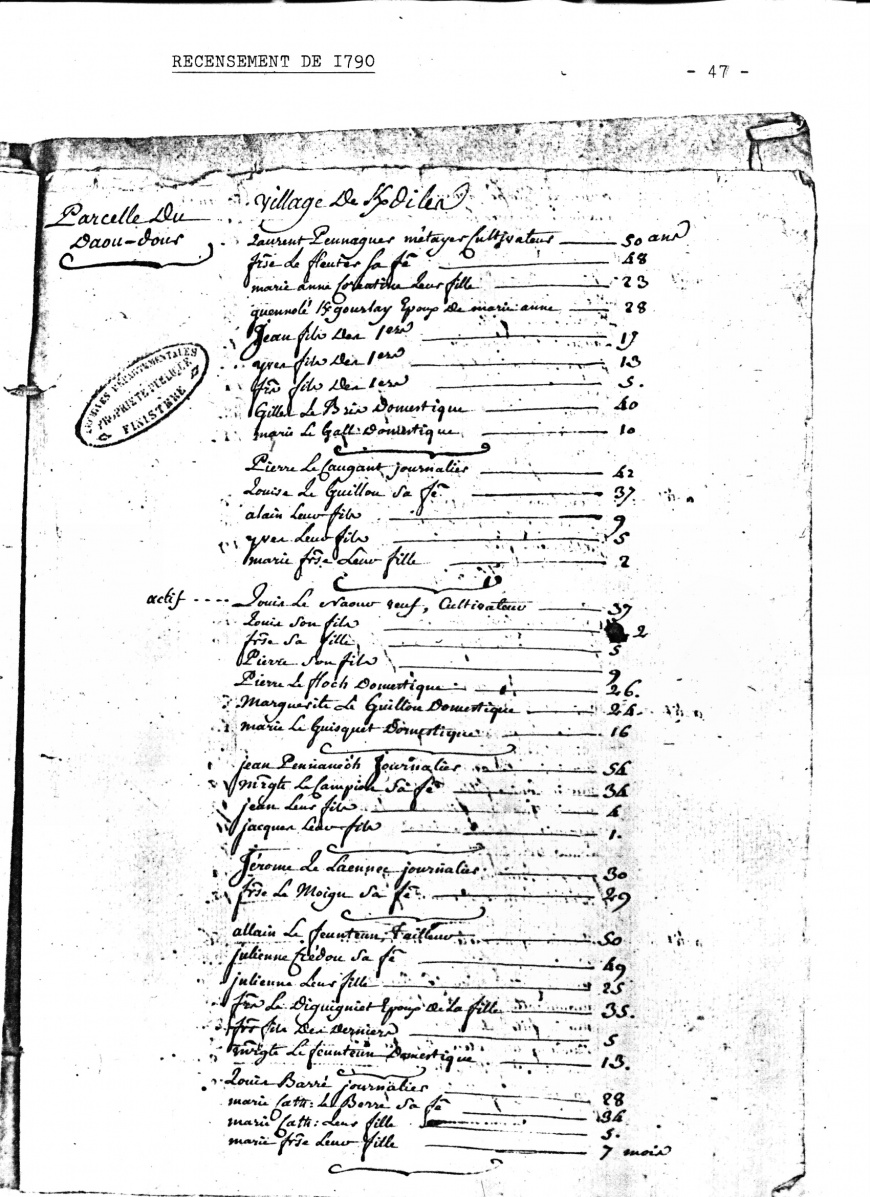 RECENSEMENT DE I790
- 47 -
Parcelle Du
Daou-dour
ARCHIVES DÉPARTEMENTALES
PROPRIÉTÉ PUBLIQUE
FINISTÈRE
Village De Kdilès
Laurent Pennaguer métayer Cultivateur 50 ans
frse Le fleuter sa fe 48
marie anne Corentine Leur fille 23
guennolé Kgourlay Epoux De marie anne 28
Jean fils Des 1ers 19
yves fils Des 1ers 13
frs fils Des 1ers 5.
Gilles Le Bris Domestique 40
marie Le Gall Domestique 10
Pierre Le Caugant journalier 42
Louise Le Guillou sa fe 37
alain Leur fils 9
yves Leur fils 5
marie frse Leur fille 2
actif .... Louis Le Naour veuf, Cultivateur 37
Louis son fils 2
frse sa fille 5
Pierre son fils 9
Pierre Le floch Domestique 26.
Marguerite Le Guillou Domestique 24.
marie Le Guisquet Domestique 16
jean Pennanéch Journalier 54
mrgte Le Campion sa fe 34
jean Leur fils 4
jacques Leur fils 1.
Jérome Le Laennec journalier 30
frse Le Moign sa fe 29
allain Le feunteun, Tailleur 50
julienne Crédou sa fe 49
julienne Leur fille 25
frs Le Diquigniet Epoux De La fille 35.
frs fils Des Derniers 5
mrgte Le feunteun Domestique 13.
Louis Barré journalier 28
marie Cath: Le Berre sa fe 34
marie Cath: Leur fille 5.
marie frse Leur fille 7 mois